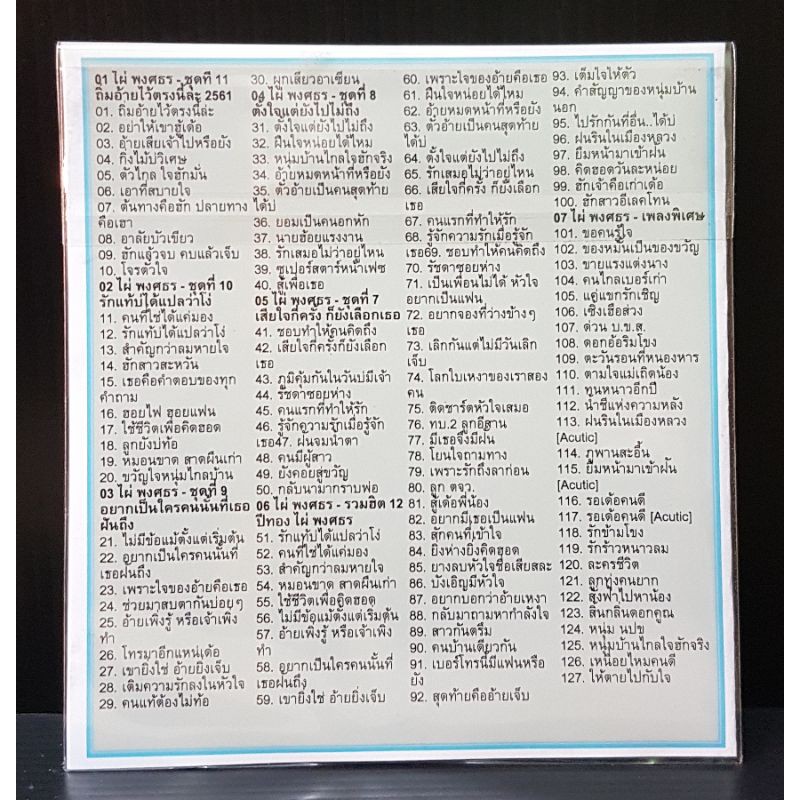 01 ไผ่ พงศธร - ชุดที่ 11
ถิ่มอ้ายไว้ตรงนี้ล่ะ 2561
01. ถิ่มอ้ายไว้ตรงนี้ล่ะ
02. อย่าให้เขาฮู้เด้อ
03. อ้ายเสียเจ้าไปหรือยัง
04. กิ่งไม้ปีวิเศษ
05. ตัวไกล ใจฮักมั่น
06. เอาที่สบายใจ
07. ต้นทางคือฮัก ปลายทาง
คือเฮา
08. อาลัยบัวเขียว
09. ฮักแล้วจบ คบแล้วเจ็บ
10. โจรตั๋วใจ
02 ไผ่ พงศธร - ชุดที่ 10
รักแท้บ่ได้แปลว่าโง่
11. คนที่ใช่ได้แค่มอง
12. รักแท้บ่ได้แปลว่าโง่
13. สำคัญกว่าลมหายใจ
14. ฮักสาวสะหวัน
15. เธอคือคำตอบของทุก
คำถาม
16. ฮอยไฟ ฮอยแฟน
17. ใช้ชีวิตเพื่อคิดฮอด
18. ลูกยังบ่ท้อ
19. หมอนขาด สาดผืนเก่า
20. ขวัญใจหนุ่มไกลบ้าน
03 ไผ่ พงศธร - ชุดที่ 9
อยากเป็นใครคนนั้นที่เธอ
ฝันถึง
21. ไม่มีข้อแม้ตั้งแต่เริ่มต้น
22. อยากเป็นใครคนนั้นที่
เธอฝันถึง
23. เพราะใจของอ้ายคือเธอ
24. ช่วยมาสบตากันบ่อยๆ
25. อ้ายเพิ่งรู้ หรือเจ้าเพิ่ง
ทำ
26. โทรมาอีกแหน่เด้อ
27. เขายิ่งใช่ อ้ายยิ่งเจ็บ
28. เติมความรักลงในหัวใจ
29. คนแท้ต้องไม่ท้อ
30. ผูกเสี่ยวอาเซียน
04 ไผ่ พงศธร - ชุดที่ 8
ตั้งใจแต่ยังไปไม่ถึง
31. ตั้งใจแต่ยังไปไม่ถึง
32. ฝืนใจหน่อยได้ไหม
33. หนุ่มบ้านไกลใจฮักจริง
34. อ้ายหมดหน้าที่หรือยัง
35. ตั๋วอ้ายเป็นคนสุดท้าย
ได้บ่
36. ยอมเป็นคนอกหัก
37. นายฮ้อยแรงงาน
38. รักเสมอไม่ว่าอยู่ไหน
39. ซูเปอร์สตาร์หน้าเฟซ
40. สู้เพื่อเธอ
05 ไผ่ พงศธร - ชุดที่ 7
เสียใจกี่ครั้ง ก็ยังเลือกเธอ
41. ชอบทำให้คนคิดถึง
42. เสียใจกี่ครั้งก็ยังเลือก
เธอ
43. ภูมิคุ้มกันในวันบ่มีเจ้า
44. รัชดาซอยห่าง
45. คนแรกที่ทำให้รัก
46. รู้จักความรักเมื่อรู้จัก
เธอ47. ฝนจมน้ำตา
48. คนมีผู้สาว
49. ยังคอยสู่ขวัญ
50. กลับนามากราบพ่อ
06 ไผ่ พงศธร - รวมฮิต 12
ปีทอง ไผ่ พงศธร
51. รักแท้บ่ได้แปลว่าโง่
52. คนที่ใช่ได้แค่มอง
53. สำคัญกว่าลมหายใจ
54. หมอนขาด สาดผืนเก่า
55. ใช้ชีวิตเพื่อคิดฮอด
56. ไม่มีข้อแม้ตั้งแต่เริ่มต้น
57. อ้ายเพิ่งรู้ หรือเจ้าเพิ่ง
ทำ
58. อยากเป็นใครคนนั้นที่
เธอฝันถึง
59. เขายิ่งใช่ อ้ายยิ่งเจ็บ
60. เพราะใจของอ้ายคือเธอ
61. ฝืนใจหน่อยได้ไหม
62. อ้ายหมดหน้าที่หรือยัง
63. ตั๋วอ้ายเป็นคนสุดท้าย
ได้บ่
64. ตั้งใจแต่ยังไปไม่ถึง
65. รักเสมอไม่ว่าอยู่ไหน
66. เสียใจกี่ครั้ง ก็ยังเลือก
เธอ
67. คนแรกที่ทำให้รัก
68. รู้จักความรักเมื่อรู้จัก
เธอ69. ชอบทำให้คนคิดถึง
70. รัชดาซอยห่าง
71. เป็นเพื่อนไม่ได้ หัวใจ
อยากเป็นแฟน
72. อยากจองที่ว่างข้างๆ
เธอ
73. เลิกกันแต่ไม่มีวันเลิก
เจ็บ
74. โลกใบเหงาของเราสอง
คน
75. ติดชาร์ตหัวใจเสมอ
76. ทบ.2 ลูกอีสาน
77. มีเธอจึงมีฝัน
78. โยนใจถามทาง
79. เพราะรักถึงลาก่อน
80. ลูก ตจว.
81. สู้เด้อพี่น้อง
82. อยากมีเธอเป็นแฟน
83. สักคนที่เข้าใจ
84. ยิ่งห่างยิ่งคิดฮอด
85. ยางลบหัวใจชื่อเสียสละ
86. บังเอิญมีหัวใจ
87. อยากบอกว่าอ้ายเหงา
88. กลับมาถามหากำลังใจ
89. สาวกันตรึม
90. คนบ้านเดียวกัน
91. เบอร์โทรนี้มีแฟนหรือ
ยัง
92. สุดท้ายคืออ้ายเจ็บ
93. เต็มใจให้ตั๋ว
94. คำสัญญาของหนุ่มบ้าน
นอก
95. ไปรักกันที่อื่น..ได้บ่
96. ฝนรินในเมืองหลวง
97. ยืมหน้ามาเข้าฝัน
98. คิดฮอดวันละหน่อย
99. ฮักเจ้าคือเก่าเด้อ
100. ฮักสาวอีเลคโทน
07 ไผ่ พงศธร - เพลงพิเศษ
101. ขอคนรู้ใจ
102. ของหมั้นเป็นของขวัญ
103. ขายแรงแต่งนาง
104. คนไกลเบอร์เก่า
105. แค่แขกรับเชิญ
106. เซิ้งเฮือฮ่วง
107. ด่วน บ.ข.ส.
108. ดอกอ้อริมโขง
109. ตะวันรอนที่หนองหาร
110. ตามใจแม่เถิดน้อง
111. ทนหนาวอีกปี
112. น้ำซีแห่งความหลัง
113. ฝนรินในเมืองหลวง
[Acutic]
114. ภูพานสะอื้น
115. ยืมหน้ามาเข้าฝัน
[Acutic]
116. รอเด้อคนดี
117. รอเด้อคนดี [Acutic]
118. รักข้ามโขง
119. รักร้าวหนาวลม
120. ละครชีวิต
121. ลูกทุ่งคนยาก
122. สั่งฟ้าไปหาน้อง
123. สิ้นกลิ่นดอกคูณ
124. หนุ่ม นปข
125. หนุ่มบ้านไกลใจฮักจริง
126. เหนื่อยไหมคนดี
127. ให้ตายไปกับใจ